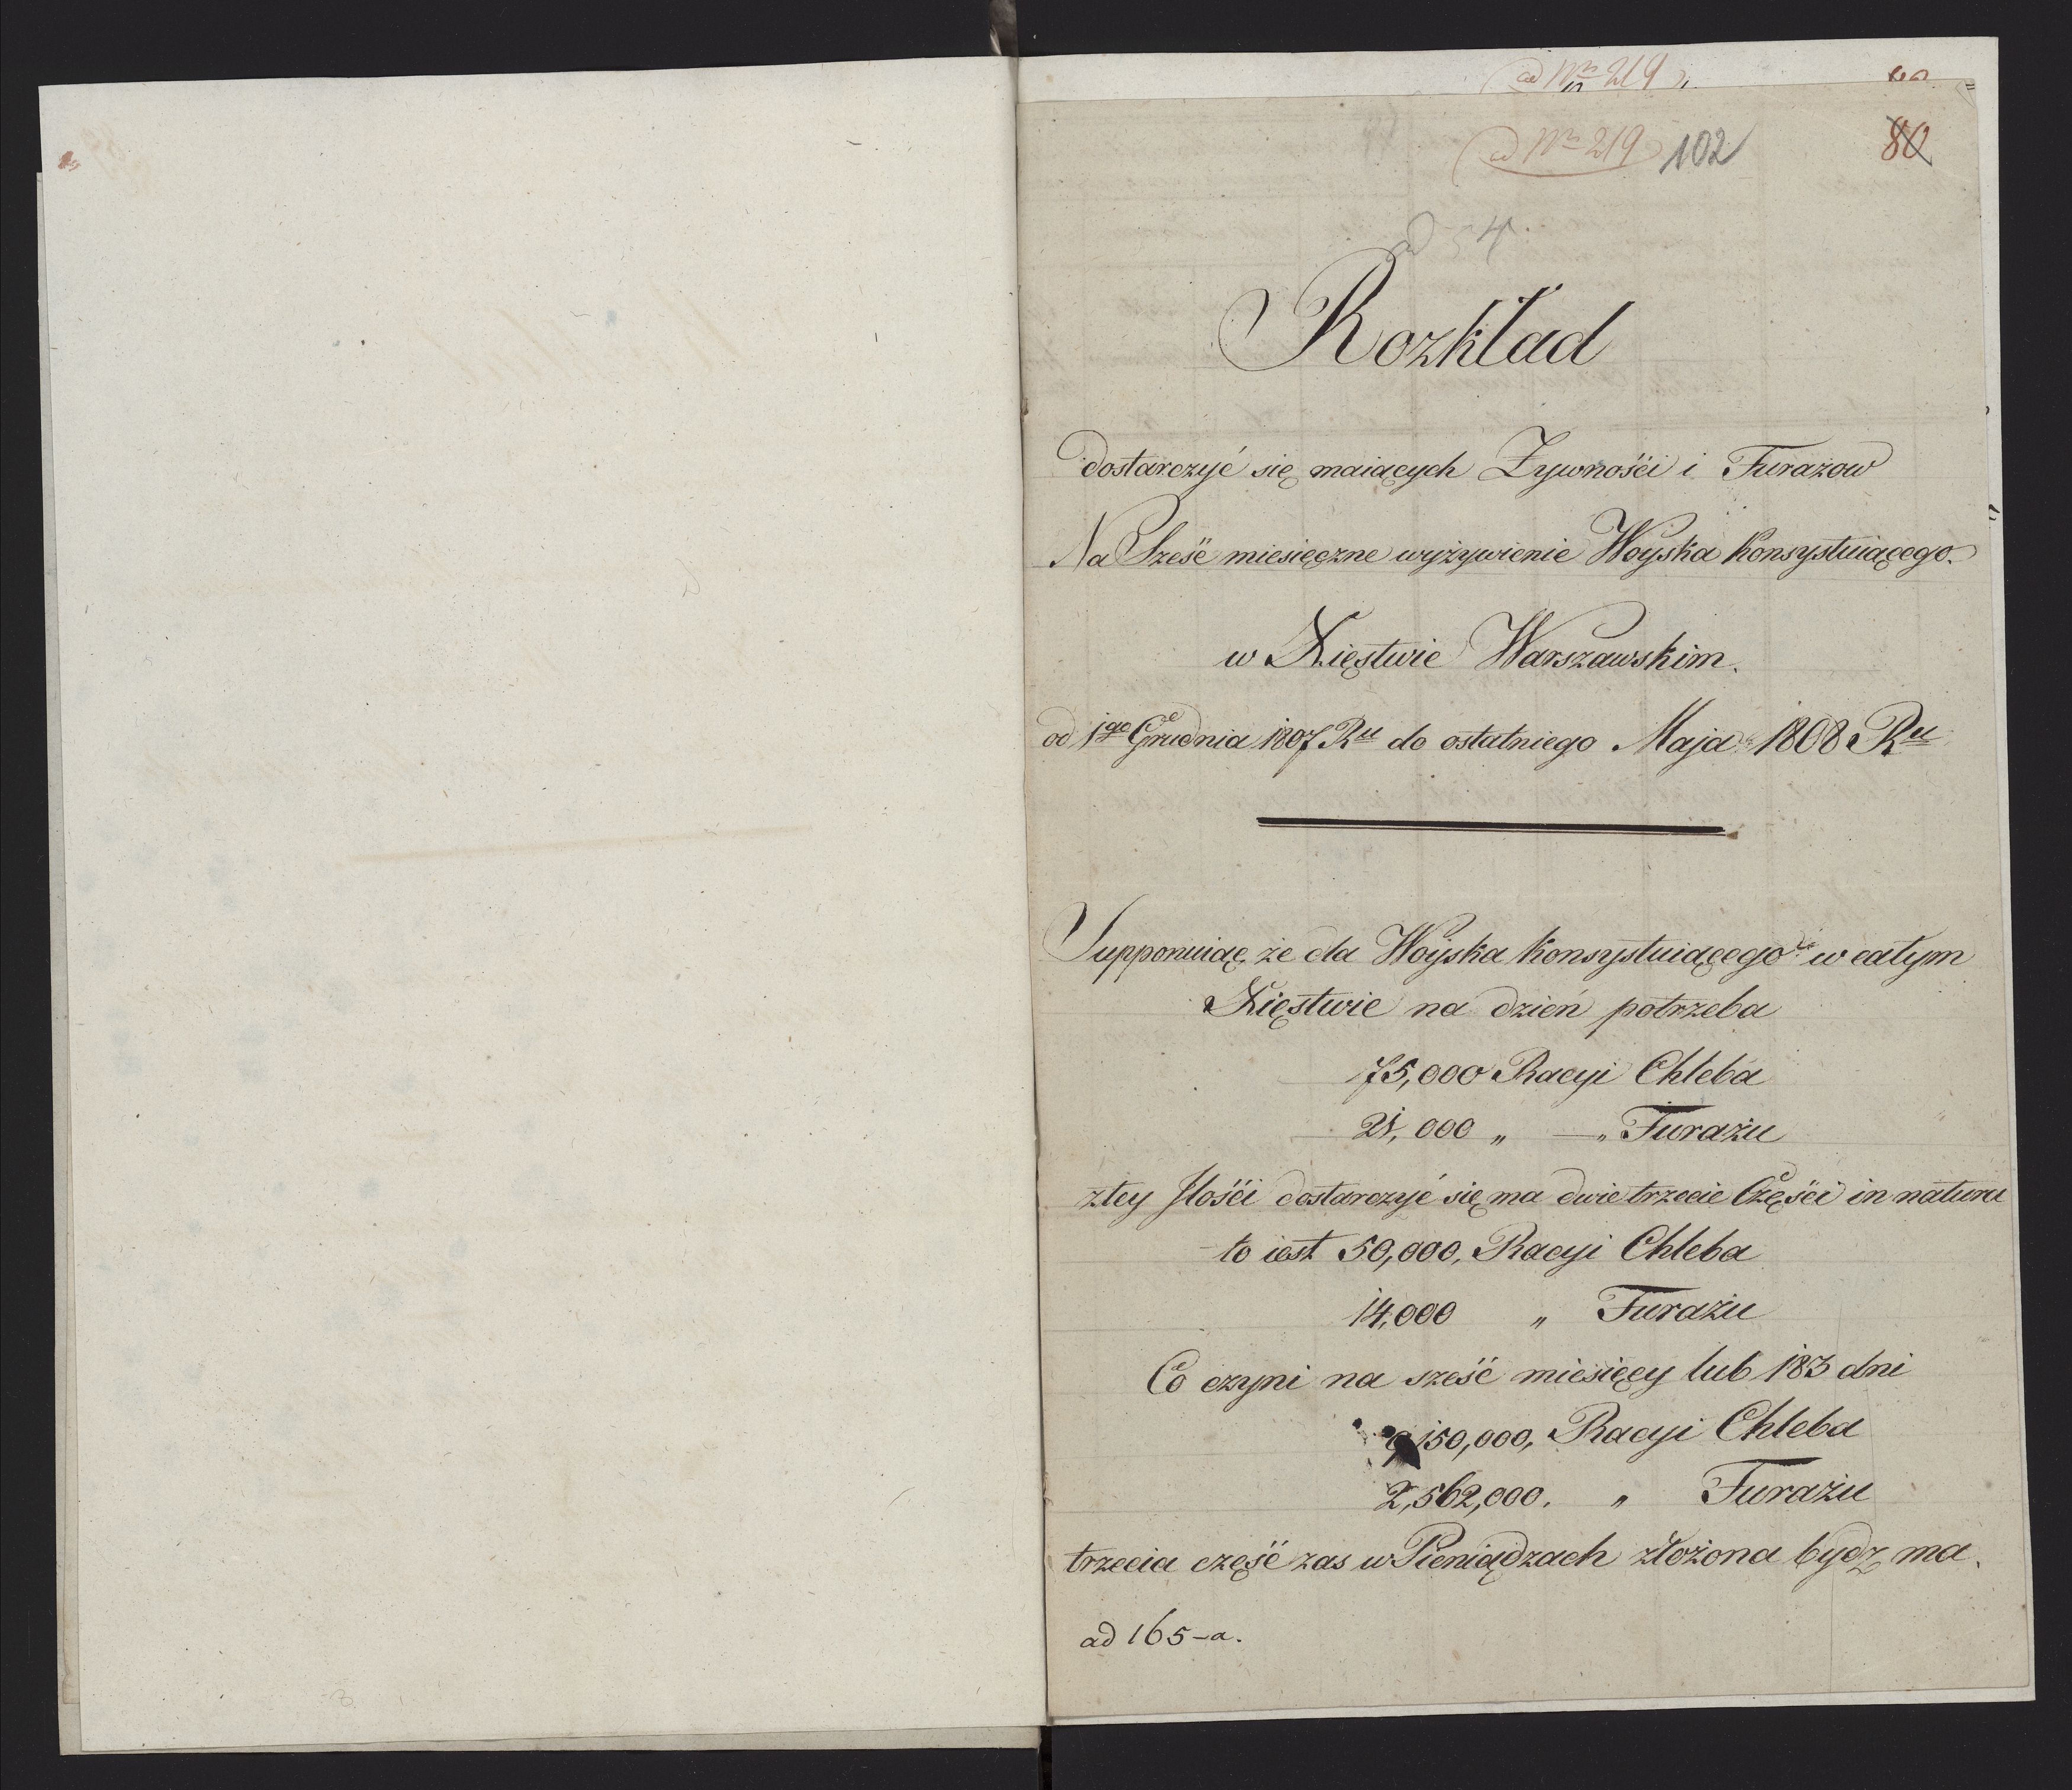 ad Nro 219
ad Nro 219 102 80
ad 54.
Rozkład
dostarczyć się maiących Zywnośći i Furazow
Na Sześć miesięczne wyżywienie Woyska konsystuiącego.
w Xięstwie Warszawskim.
od 1go Grudnia 1807 Ru do ostatniego Maja 1808 Ru
Supponuiąc że dla Woyska konsystuiącego w całym
Xięstwie na dzień potrzeba
75,000 Racyi Chleba
21,000 „ — „ Furażu
z tey Ilośći dostarczyć się ma dwie trzecie Częśći in natura
to iest 50,000, Racyi Chleba
14,000 „ Furażu
Co czyni na sześć miesięcy lub 183 dni
9,150,000, Racyi Chleba
2,562,000. „ Furażu
trzecia część zas w Pieniądzach złożona bydz ma.
ad 165-a.